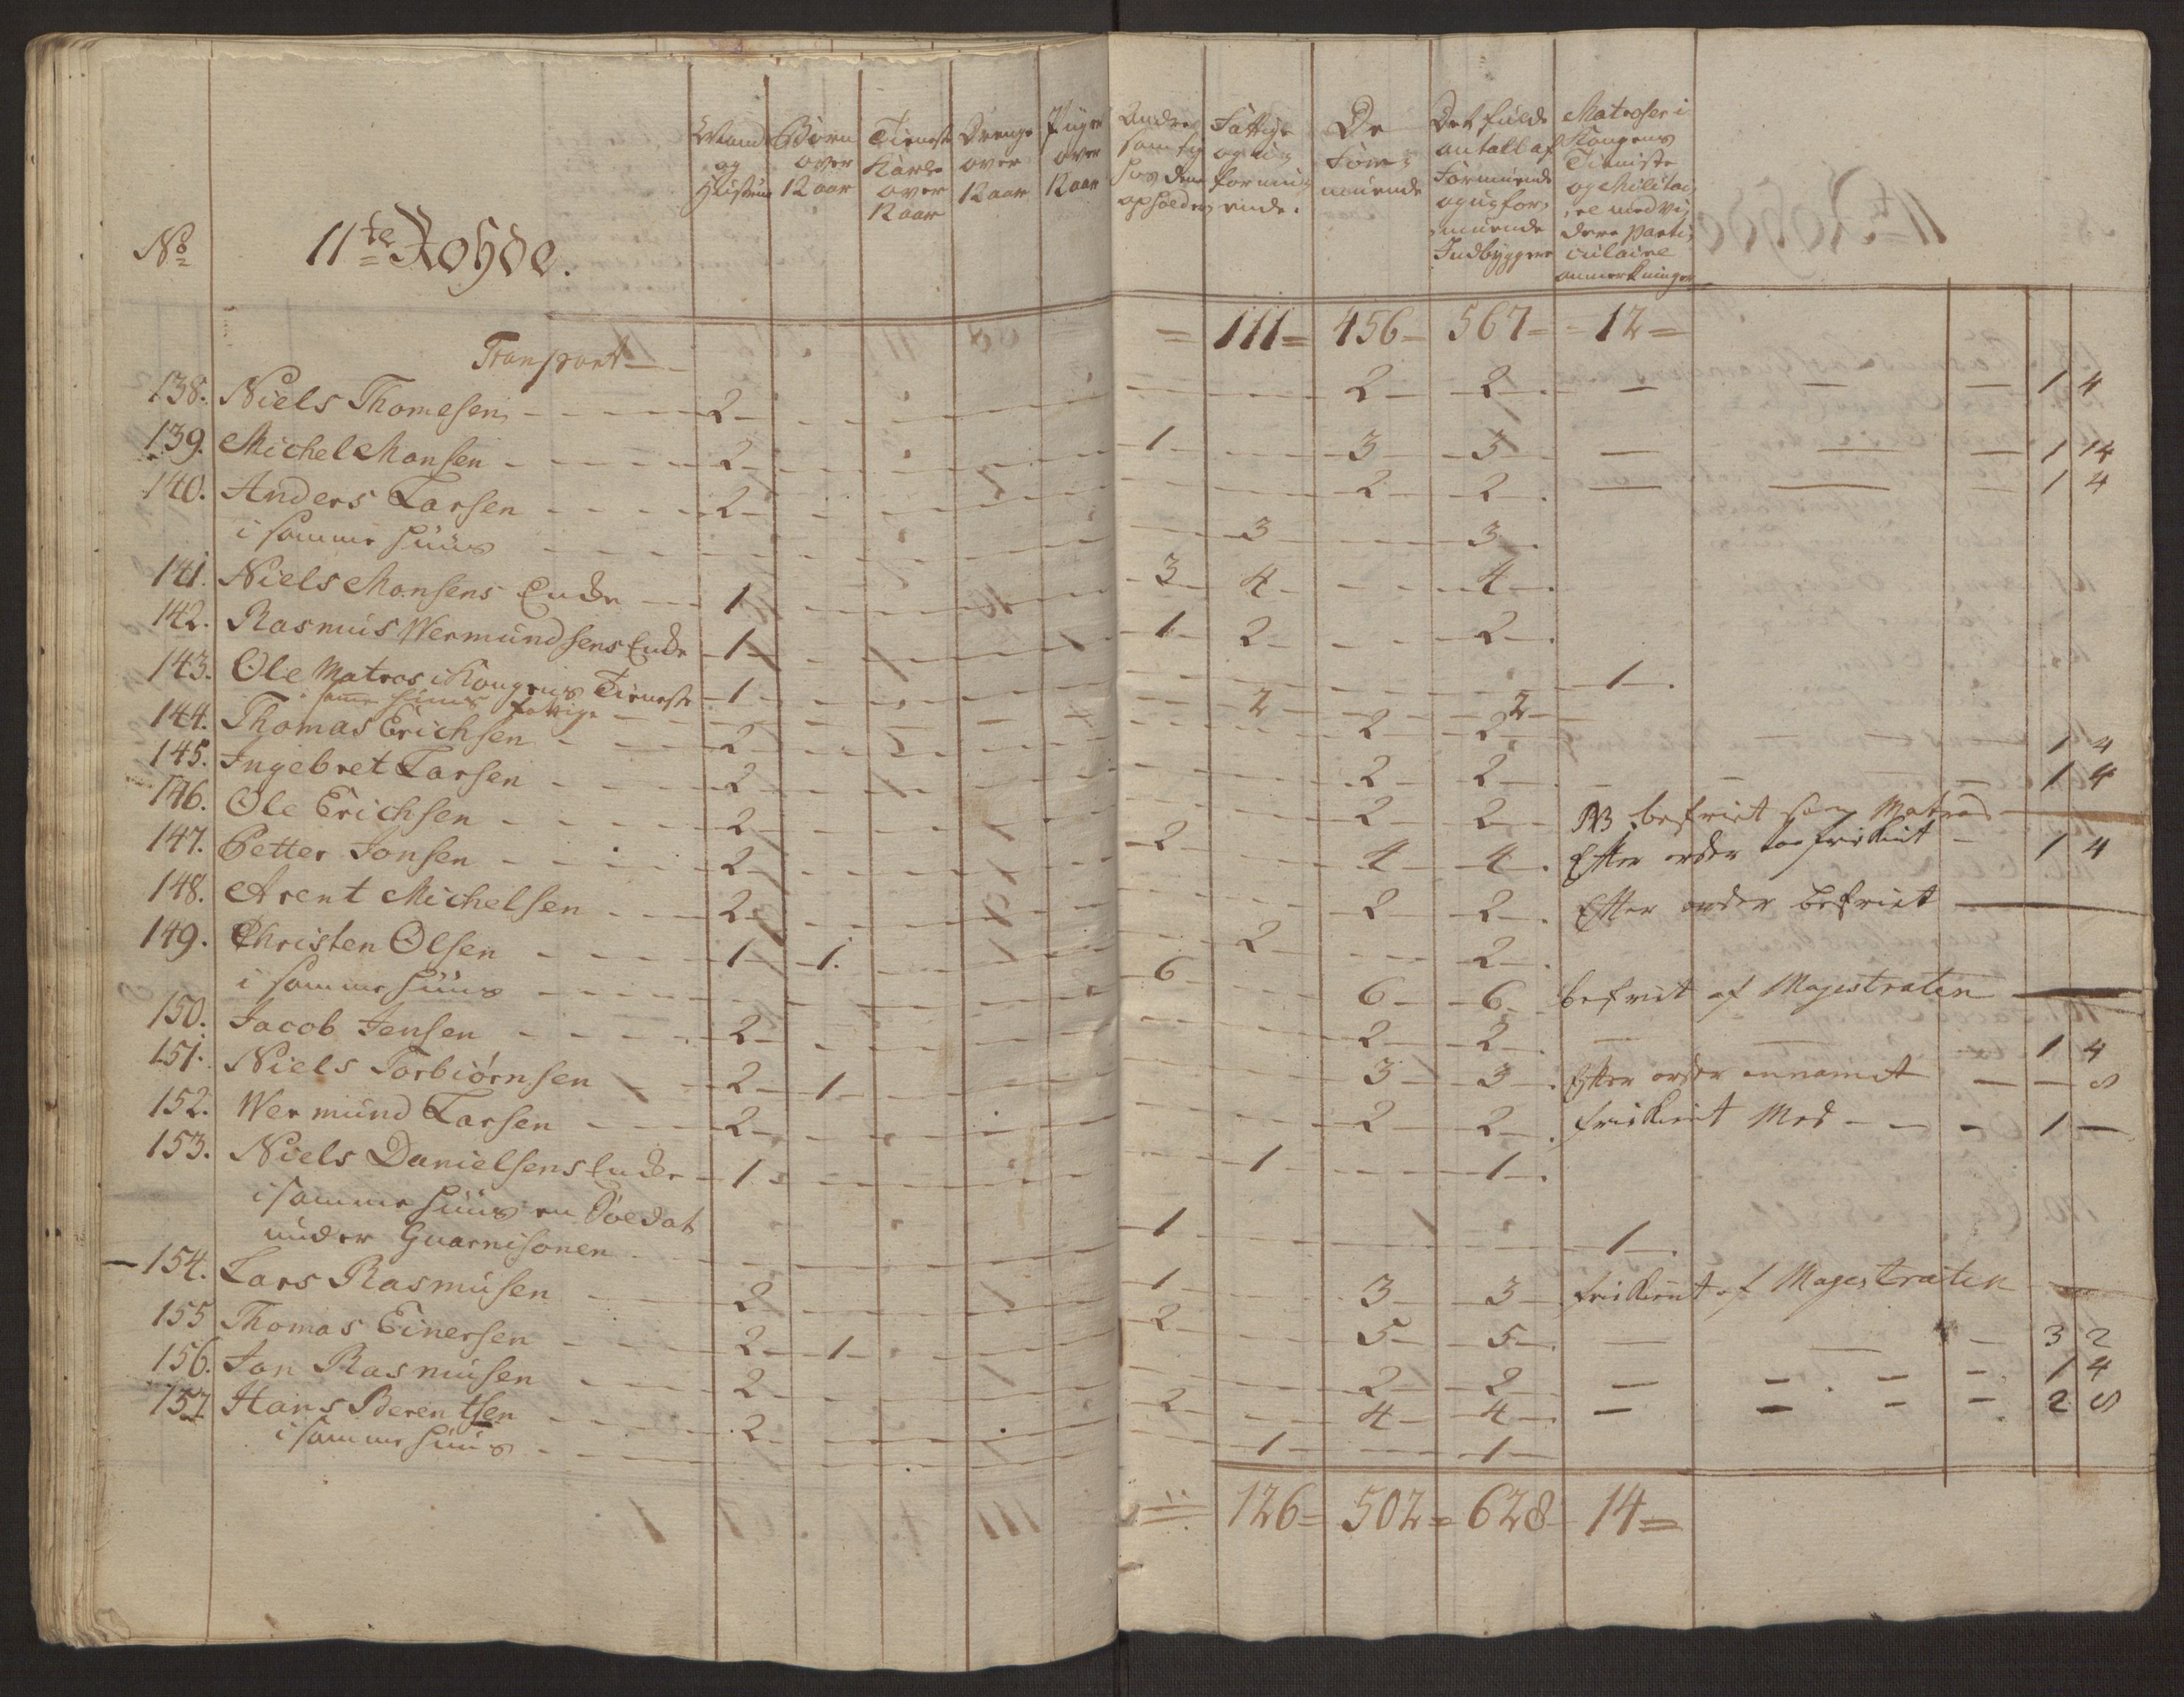 No 11te Rohde.
Mand og Hustrue
Børn over 12 aar
Tieneste Karle over 12 aar
Drenge over 12 aar
Piger over 12 aar
Andre som sig hos dem opholder
Fattige og uformuende.
De Formuende
Det fulde antall af Formuende og uformuende Indbyggere
Matroser i Kongens Tieniste og Militaire med videre particulaire anmerkninger
Transport = 111= 456- 567- 12=
138. Niels Thomesen 2 2 2 1 4
139. Michel Monsen 2 1 3 3 1 14
140. Anders Larsen 2 2 2 1 4
i samme Huus 3 3
141. Niels Monsens Enke 1 3 4 4
142. Rasmus Wermundsens Enke 1 1 2 2
143. Ole Matros i Kongens Tieneste 1 1
i samme Huus fattige 2 2
144. Thomas Erichsen 2 2 2 1 4
145. Ingebret Larsen 2 2 2 1 4
146. Ole Erichsen 2 2 2 NB befriet som Matros
147. Petter Jonsen 2 2 4 4 Efter order 1 4
148. Arent Michelsen 2 2 2 Efter order befriet
149. Christen Olsen 1 1 2 2
i samme Huus 6 6 6 befriet af Magistraten
150. Jacob Jensen 2 2 2 1 4
151. Niels Torbiørnsen 2 1 3 3 Efter order 8
152. Wermund Larsen 2 2 2 Med 1 -
153. Niels Danielsens Enke 1 1 1
i samme Huus en Soldat
under Guarnisonen 1 1
154. Lars Rasmusen 2 1 3 3 af Magestraten
155 Thomas Einersen 2 1 2 5 5 3 2
156. Jon Rasmusen 2 2 2 1 4
157 Hans Berentsen 2 2 4 4 2 8
i samme Huus 1 1
126= 502= 628 14=